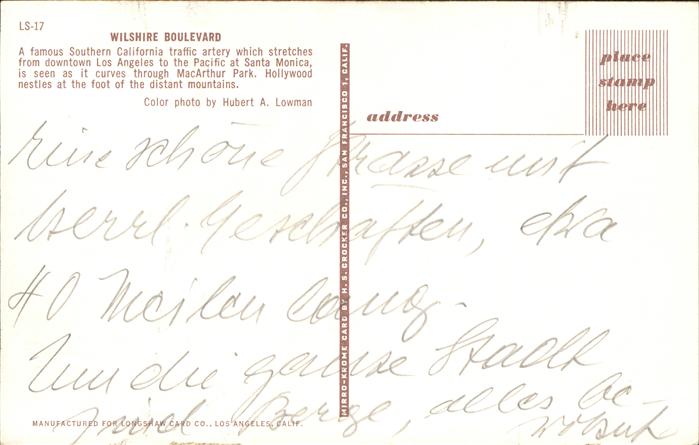 LS-17
WILSHIRE BOULEVARD
A famous Southern California traffic artery which stretches
from downtown Los Angeles to the Pacific at Santa Monica,
is seen as it curves through MacArthur Park. Hollywood
nestles at the foot of the distant mountains.
Color photo by Hubert A. Lowman
place
stamp
here
address
MIRRO-KROME CARD BY H. S. CROCKER CO., INC., SAN FRANCISCO 1, CALIF.
Eine schöne Strasse mit
herrl. Geschäften, etwa
40 Meilen lang.
Um die ganze Stadt
sind Berge, alles be-
MANUFACTURED FOR LONGSHAW CARD CO., LOS ANGELES, CALIF.